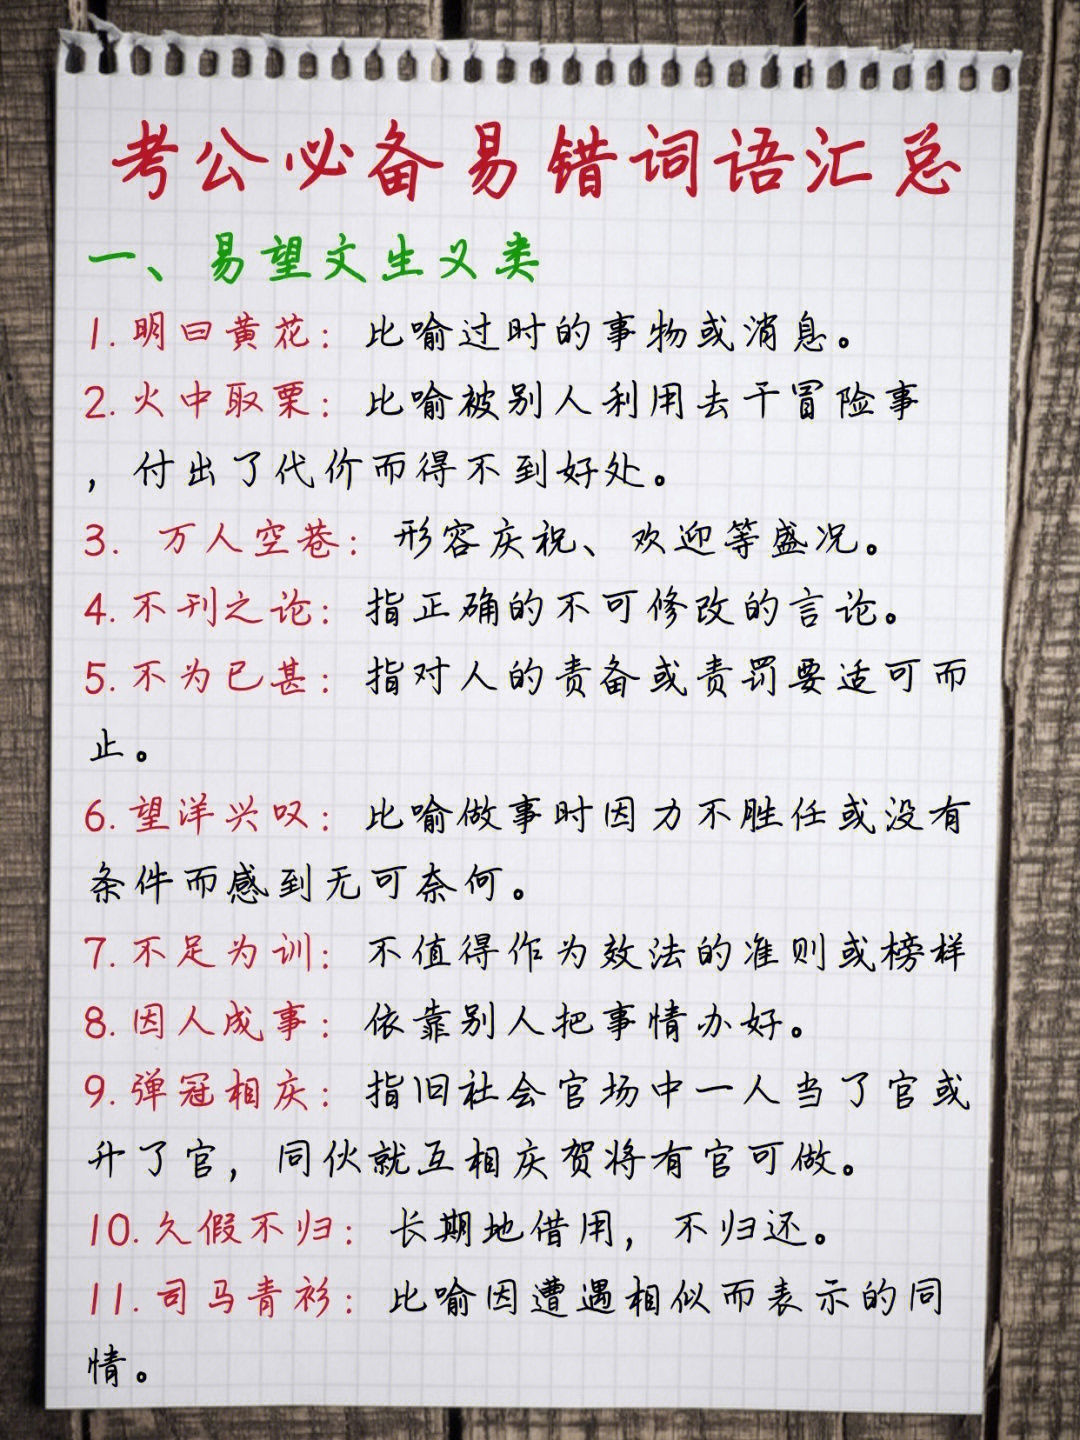 考公必备易错词语汇总
一、易望文生义类
1.明日黄花：比喻过时的事物或消息。
2.火中取栗：比喻被别人利用去干冒险事
，付出了代价而得不到好处。
3. 万人空巷：形容庆祝、欢迎等盛况。
4.不刊之论：指正确的不可修改的言论。
5.不为已甚：指对人的责备或责罚要适可而
止。
6.望洋兴叹：比喻做事时因力不胜任或没有
条件而感到无可奈何。
7.不足为训：不值得作为效法的准则或榜样
8.因人成事：依靠别人把事情办好。
9.弹冠相庆：指旧社会官场中一人当了官或
升了官，同伙就互相庆贺将有官可做。
10.久假不归：长期地借用，不归还。
11.司马青衫：比喻因遭遇相似而表示的同
情。